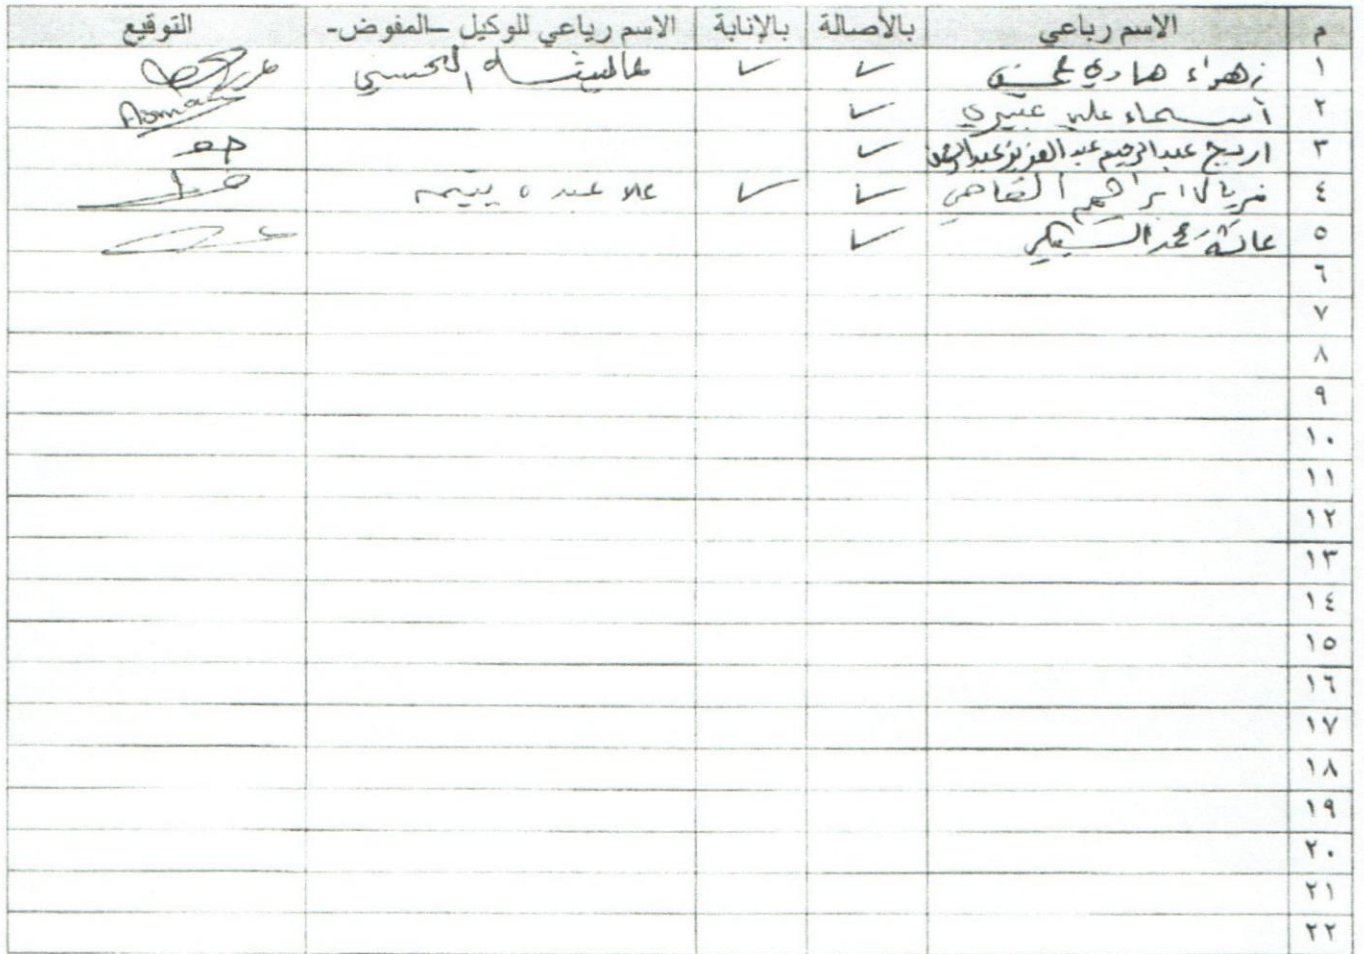 م الاسم رباعي بالأصالة بالإنابة الاسم رباعي للوكيل –المفوض- التوقيع
١ زهراء هادي ✓ ✓ الحسني
٢ أسماء علي عبيري ✓ Asma
٣ اريج عبدالرحيم عبدالعزيز عبدالرحمن ✓
٤ فريال ابراهيم القاضي ✓ ✓ علا عبده
٥ عائشة محمد ✓
٦
٧
٨
٩
١٠
١١
١٢
١٣
١٤
١٥
١٦
١٧
١٨
١٩
٢٠
٢١
٢٢